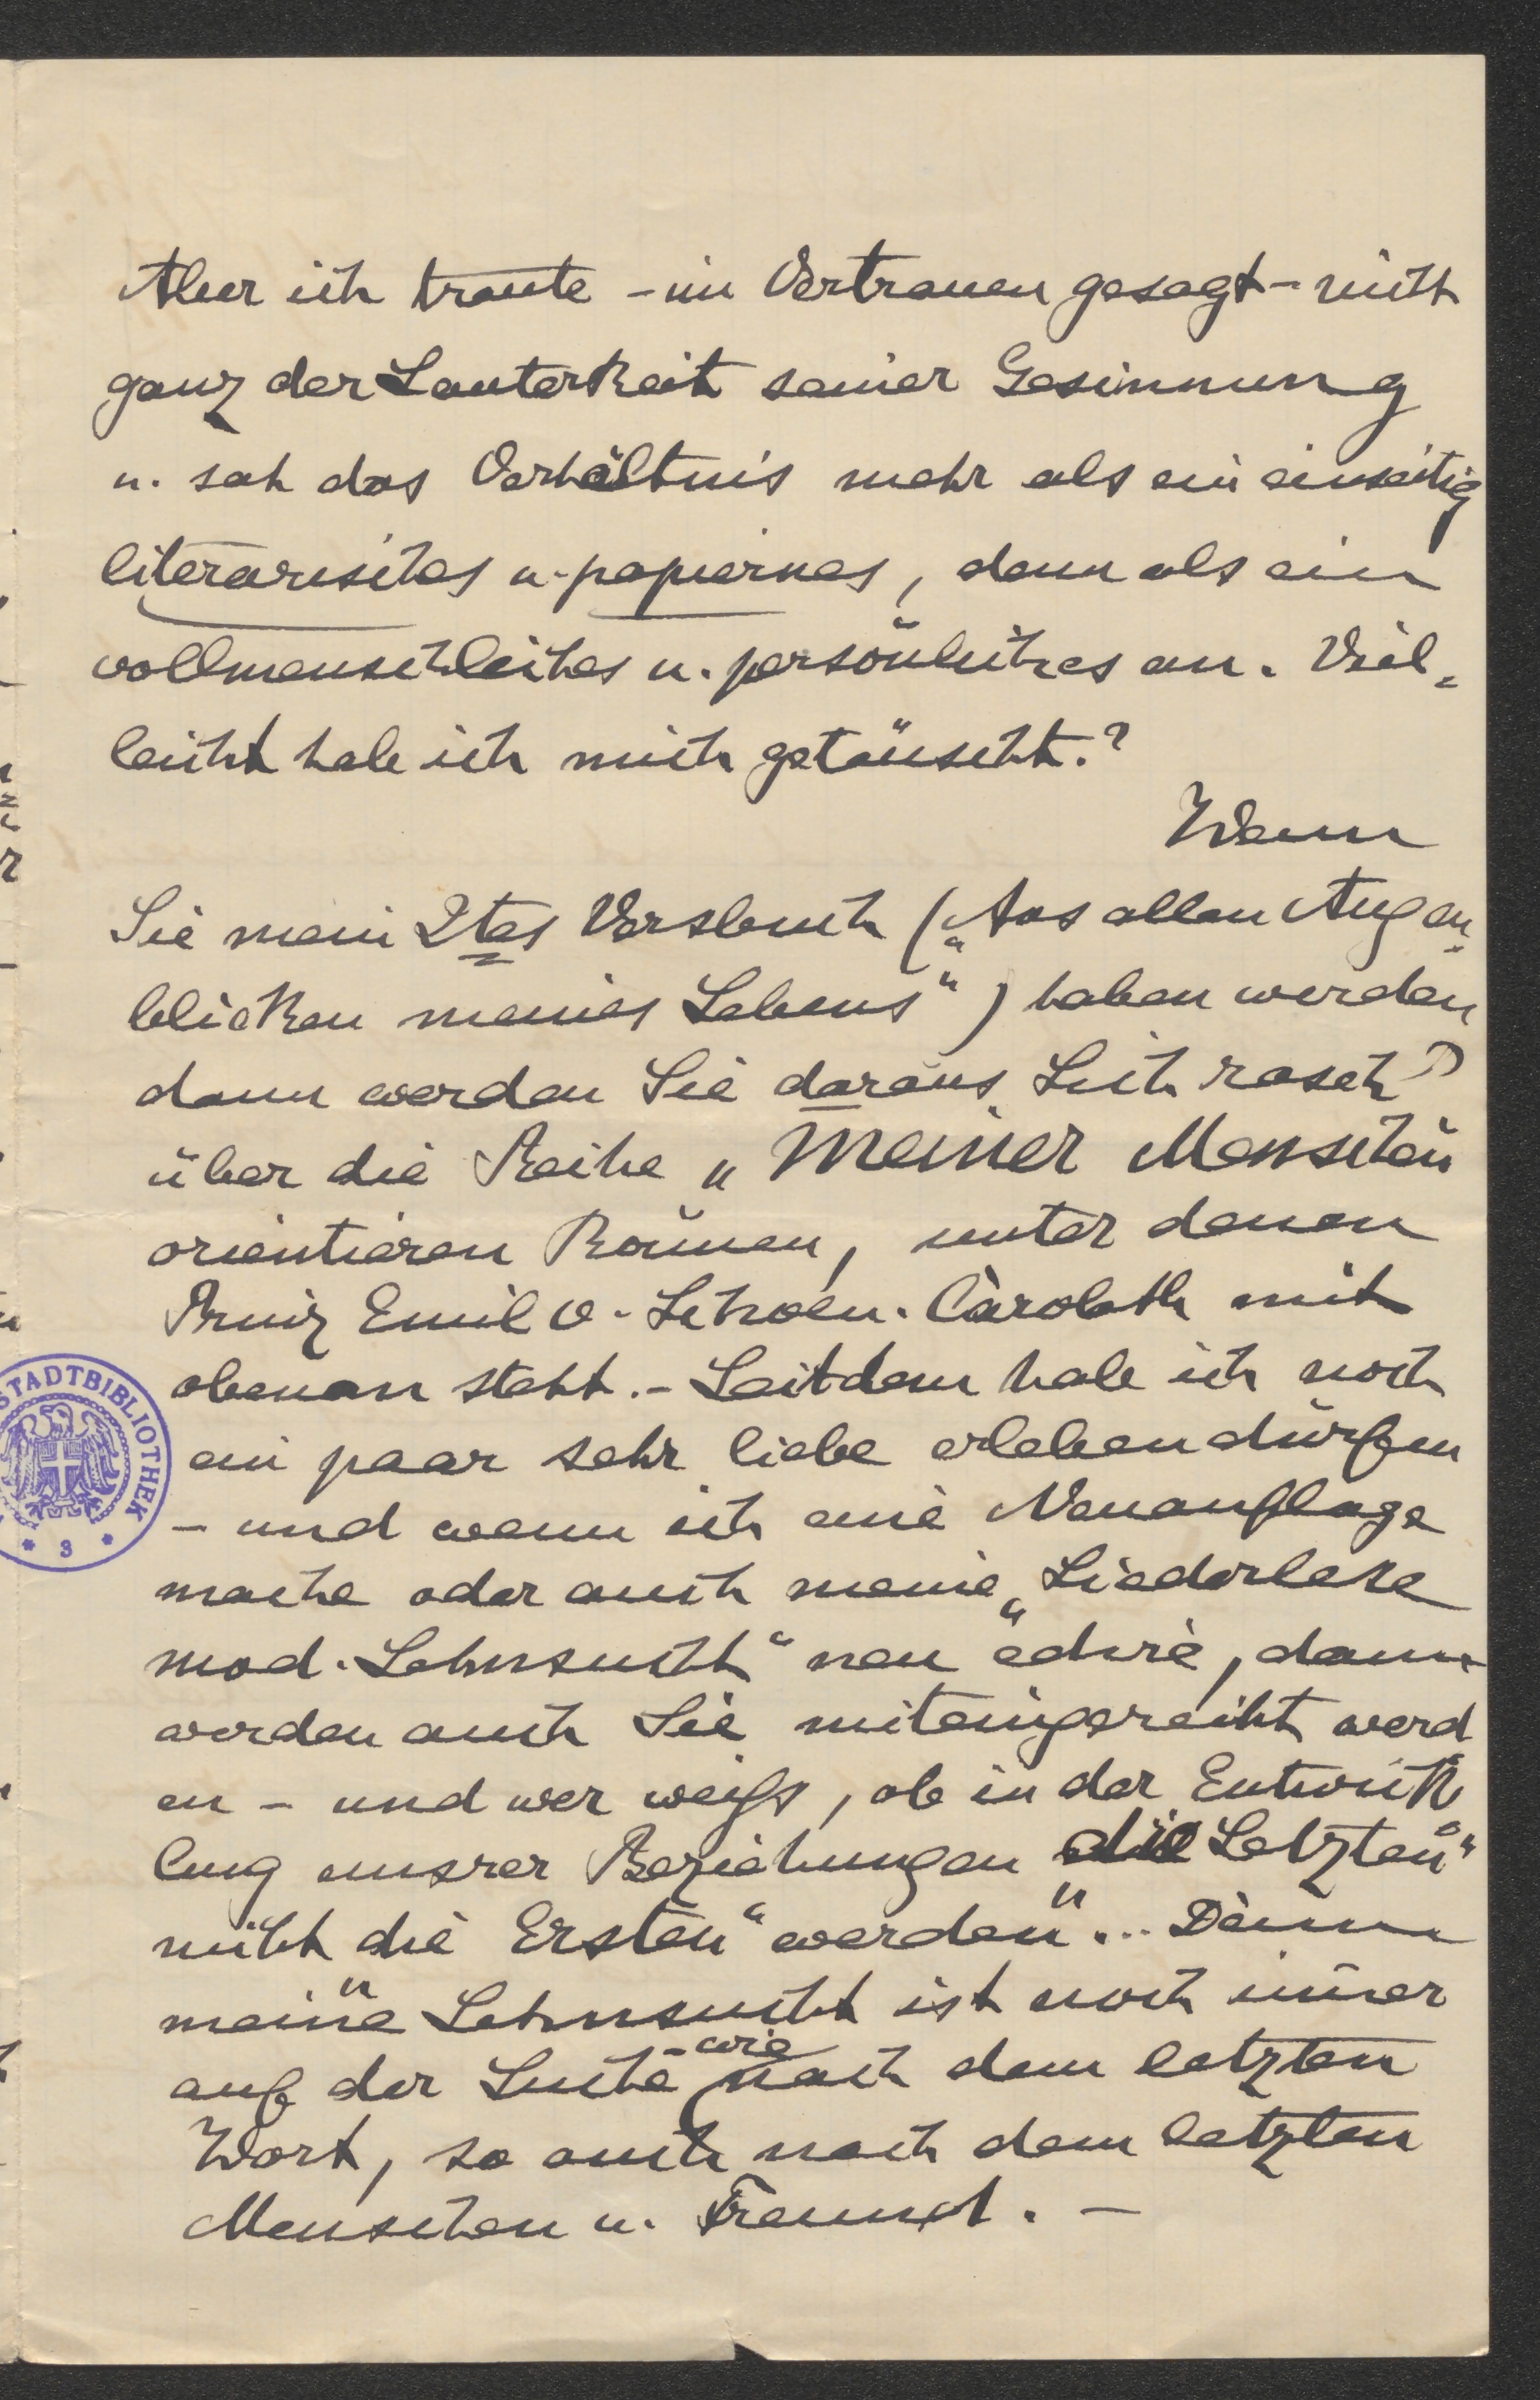 Aber ich traute - im Vertrauen gesagt - nicht
ganz der Lauterkeit seiner Gesinnung
u. sah das Verhältnis mehr als ein einseitig
literarisches u. papiernes, denn als ein
vollmenschliches u. persönliches an. Viel=
leicht habe ich mich getäuscht.?
Wenn
Sie mein 2tes Versbuch („Aus allen Augen=
blicken meines Lebens“) haben werden,
dann werden Sie daraus Sich rasch
über die Reihe „Meiner Menschen“
orientieren können, unter denen
Prinz Emil v. Schoen. Carolath mit
obenan steht. - Seitdem habe ich noch
ein paar sehr liebe erleben dürfen
- und wenn ich eine Neuauflage
mache oder auch meine „Liederlese
mod. Sehnsucht“ neu edire, dann
werden auch Sie miteingereiht werd
en - und wer weiß, ob in der Entwick
lung unsrer Beziehungen „die Letzten“
nicht die „Ersten“ werden ... Denn
meine Sehnsucht ist noch immer
auf der Suche - wie nach dem letzten
Wort, so auch nach dem letzten
Menschen u. Freund. -
STADTBIBLIOTHEK
* 3 *